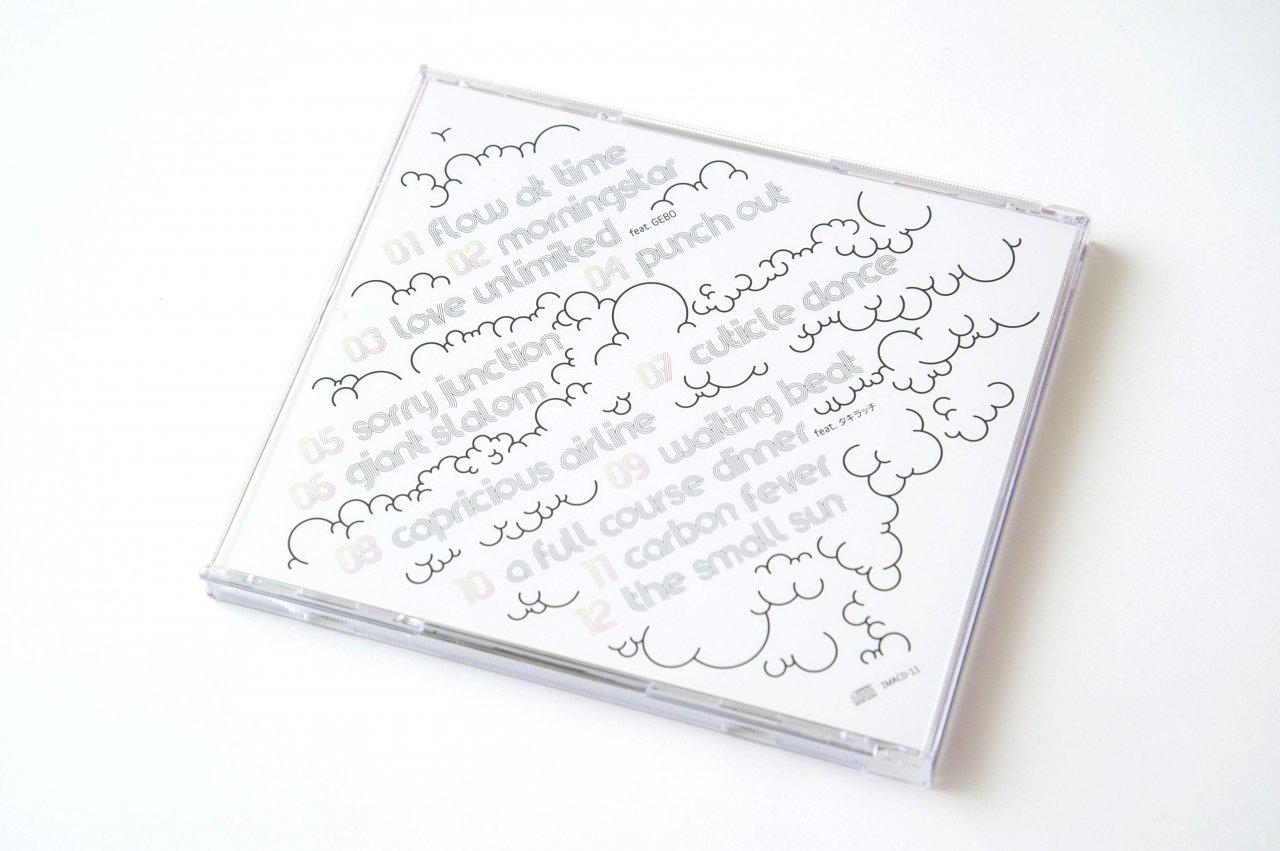 01 flow at time
02 morningstar
03 love unlimited feat. GEBO
04 punch out
05 sorry junction
06 giant slalom
07 cuticle dance
08 capricious airline
09 waiting beat
10 a full course dinner feat. タキラッチ
11 carbon fever
12 the small sun
IMACD-11